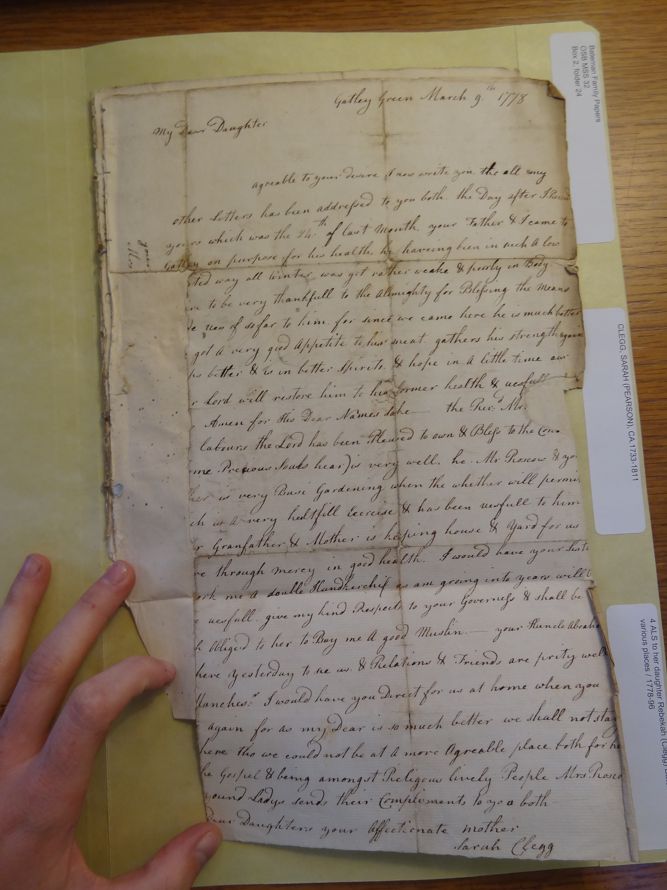 Gatley Green March 9th 1778
My Dear Daughter
agreable to your desire I now write you tho all my
other Letters has been addressed to you both. the Day after I
yours which was the 24th of last Month, your Father & I came to
Gatley on purpose for his health, he haveing been in such A low
way all winter was got rather weake & poorly in Body
to be very thankfull to the Almighty for Blessing the means
of so far to him. for since we came here he is much better
got A very good Appetite to his meat. gathers his strength
better & is in better spirits. & hope in A little time our
Lord will restore him to his former health & usefull
Amen for His Dear Names sake — the Revd Mr.
labours the Lord has been Pleased to own & Bless to the Con
me Precious Souls hear) is very well. he. Mr Roscow &
is very Buse Gardening when the whether will permi
is A very helthfull Exercise & has been usefull to him
Granfather & Mother is keping house & Yard for us
through mercy in good health. I would have your
me A double Hundkerchif as am groing into years will
usefull. give my kind Respects to your Governess & shall be
Abliged to her to Buy me A good Muslin. — your Huncle
here yesterday to se us. & Relations & Friends are prity well
I would have you Direct for us at home when you
again for as my Dear is so much better we shall not stay
here tho we could not be at A more Agreable place both for
Gospel & being amongst Religeous lively People Mrs
Ladys sends their Complements to you both
Dear Daughters your affectionate mother
Sarah Clegg
Bateman Family Papers
OSB MSS 32
Box 2, folder 24
CLEGG, SARAH (PEARSON), CA.1733-1811
4 ALS to her daughter Rebekah (Clegg)
various places / 1778-96